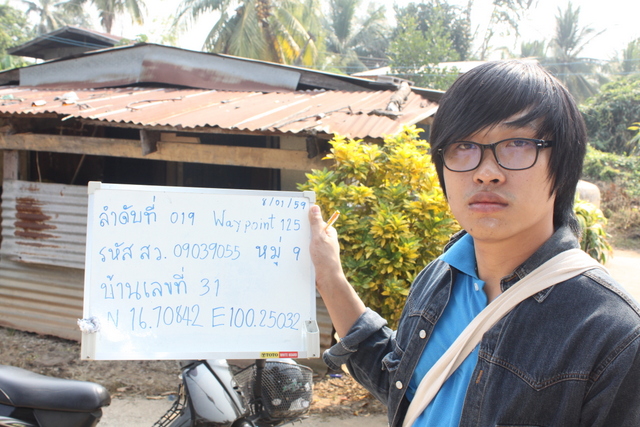 8/01/59
ลำดับที่ 019 Waypoint 125
รหัส สว. 09039055 หมู่ 9
บ้านเลขที่ 31
N 16.70842 E100.25032